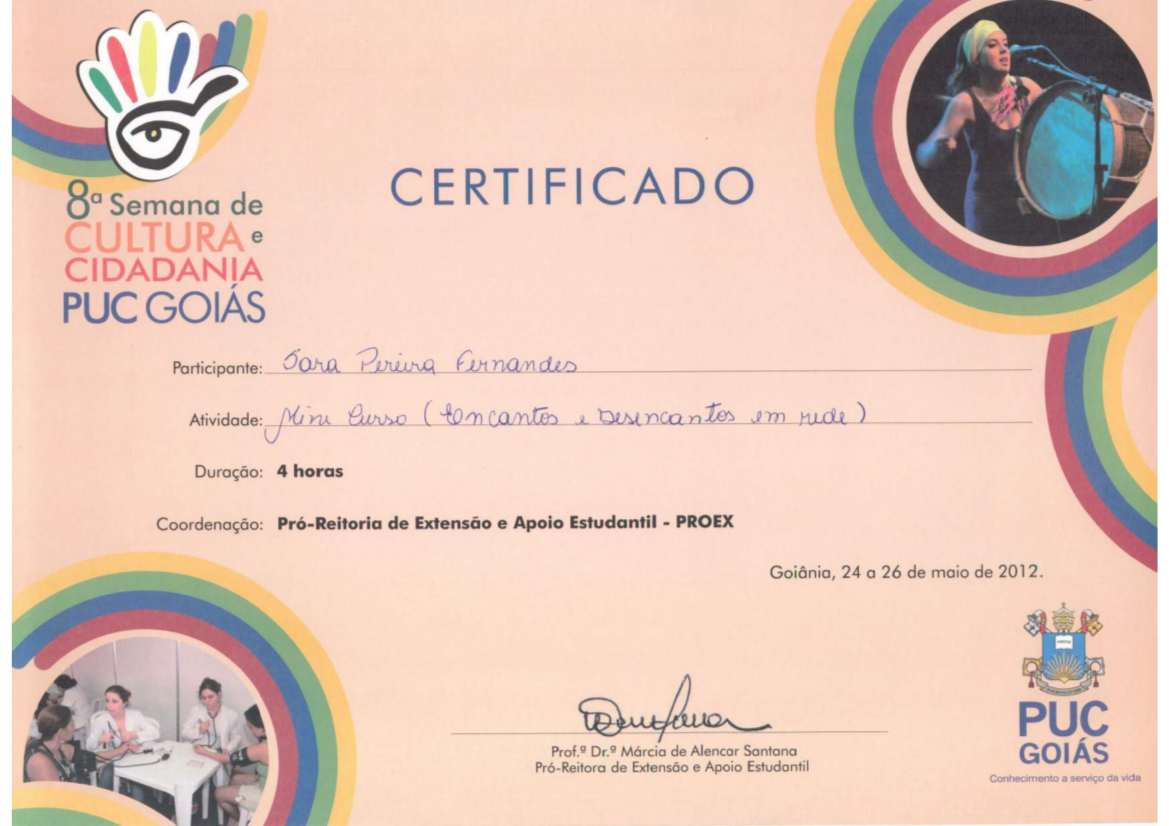 8ª Semana de
CULTURA e
CIDADANIA
PUC GOIÁS
CERTIFICADO
Participante: Sara Pereira Fernandes
Atividade: Mini Curso (Encantos e Desencantos em rede)
Duração: 4 horas
Coordenação: Pró-Reitoria de Extensão e Apoio Estudantil - PROEX
Goiânia, 24 a 26 de maio de 2012.
Prof.ª Dr.ª Márcia de Alencar Santana
Pró-Reitora de Extensão e Apoio Estudantil
PUC
GOIÁS
Conhecimento a serviço da vida